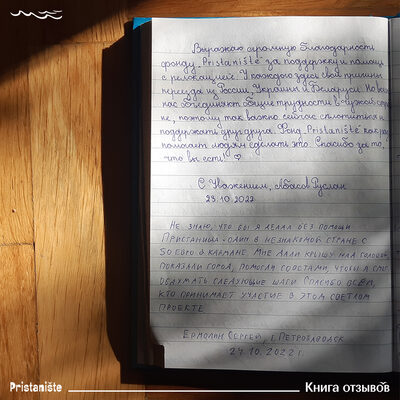 Выражаю огромную благодарность
фонду Pristanište за поддержку и помощь
с релокацией. У каждого здесь свои причины
переезда из России, Украины и Беларуси. Но всех
нас объединяют общие трудности в чужой стра
не, поэтому так важно сейчас сплотиться и
поддержать друг друга. Фонд Pristanište как раз
помогает людям сделать это. Спасибо за то,
что вы есть! ♡
С Уважением, Абасов Руслан
23.10.2022
Не знаю, что бы я делал без помощи
Пристанища - один в незнакомой стране с
50 евро в кармане. Мне дали крышу над головой,
показали город, помогли советами, чтобы я смог
обдумать следующие шаги. Спасибо всем,
кто принимает участие в этом светлом
проекте
Ермолин Сергей, г. Петрозаводск
24.10.2022 г.
Pristanište
Книга отзывов